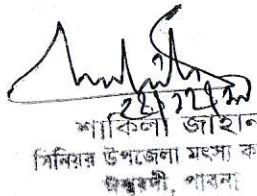 শাকিলা জাহান
সিনিয়র উপজেলা মৎস্য ক
ঈশ্বরদী, পাবনা